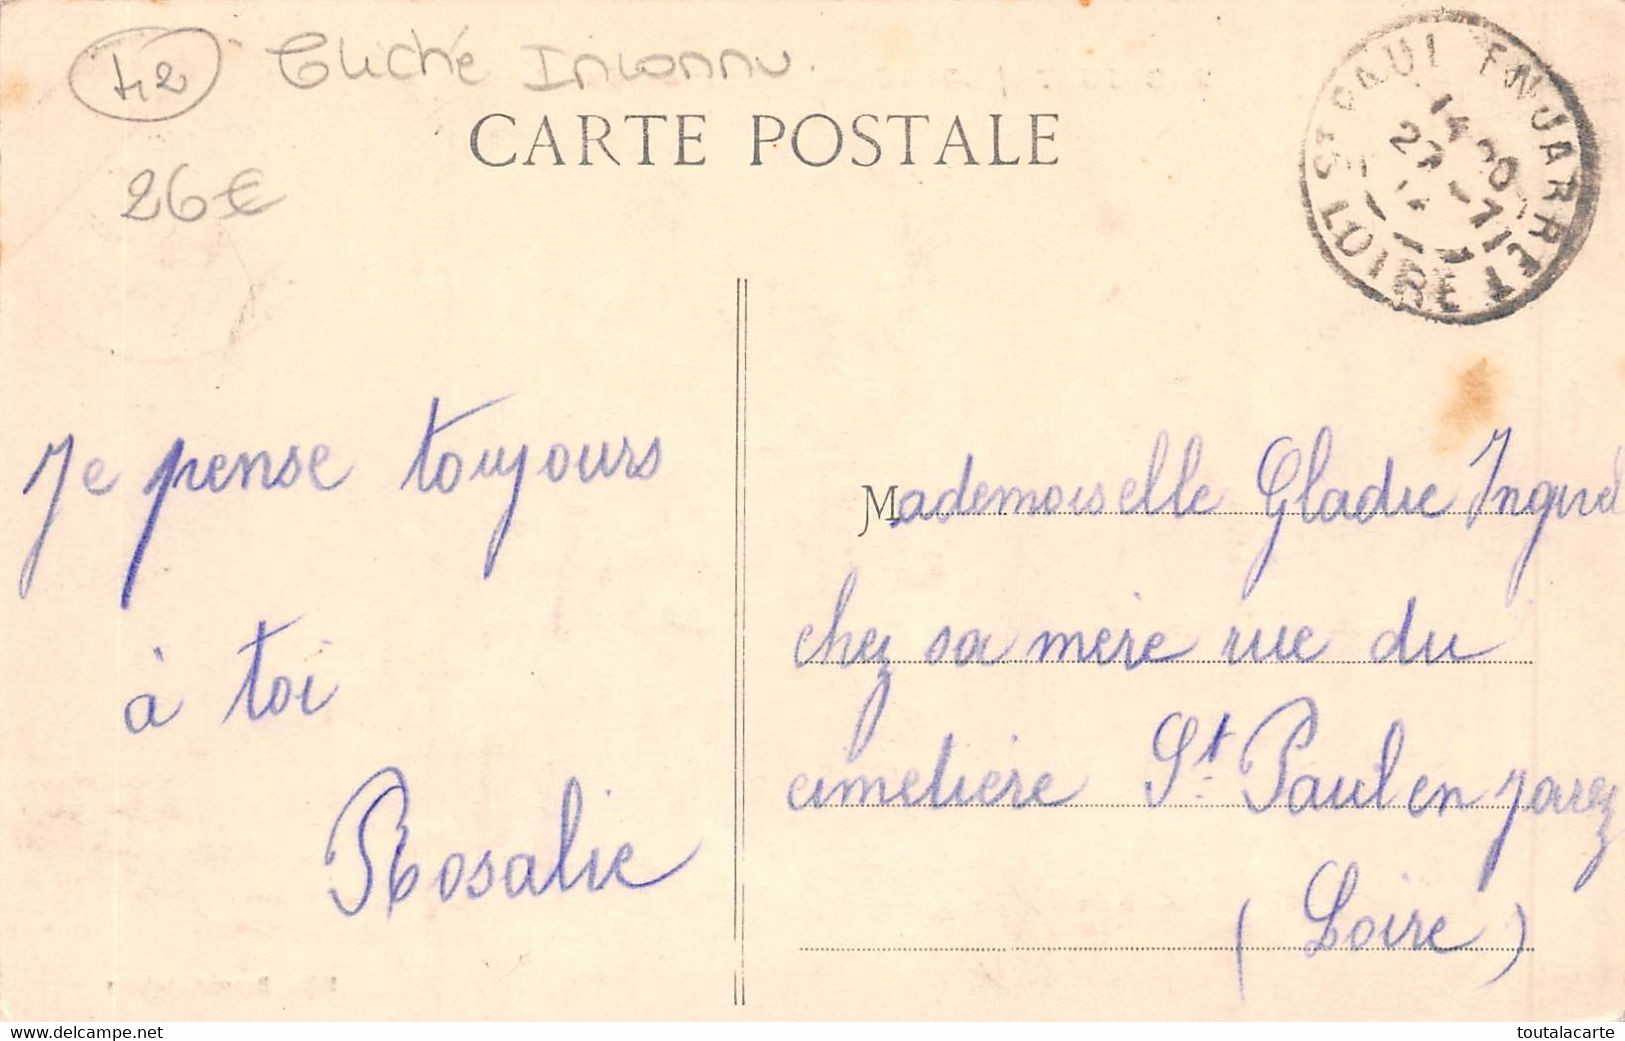 42 Cliché Inconnu.
CARTE POSTALE
26€
ST PAUL EN JARRET
14 30
27 -7
LOIRE
Je pense toujours
à toi
Rosalie
Mademoiselle Gladie
chez sa mère rue du
cimetière St. Paul en Jarez
(Loire)
www.delcampe.net
toutalacarte